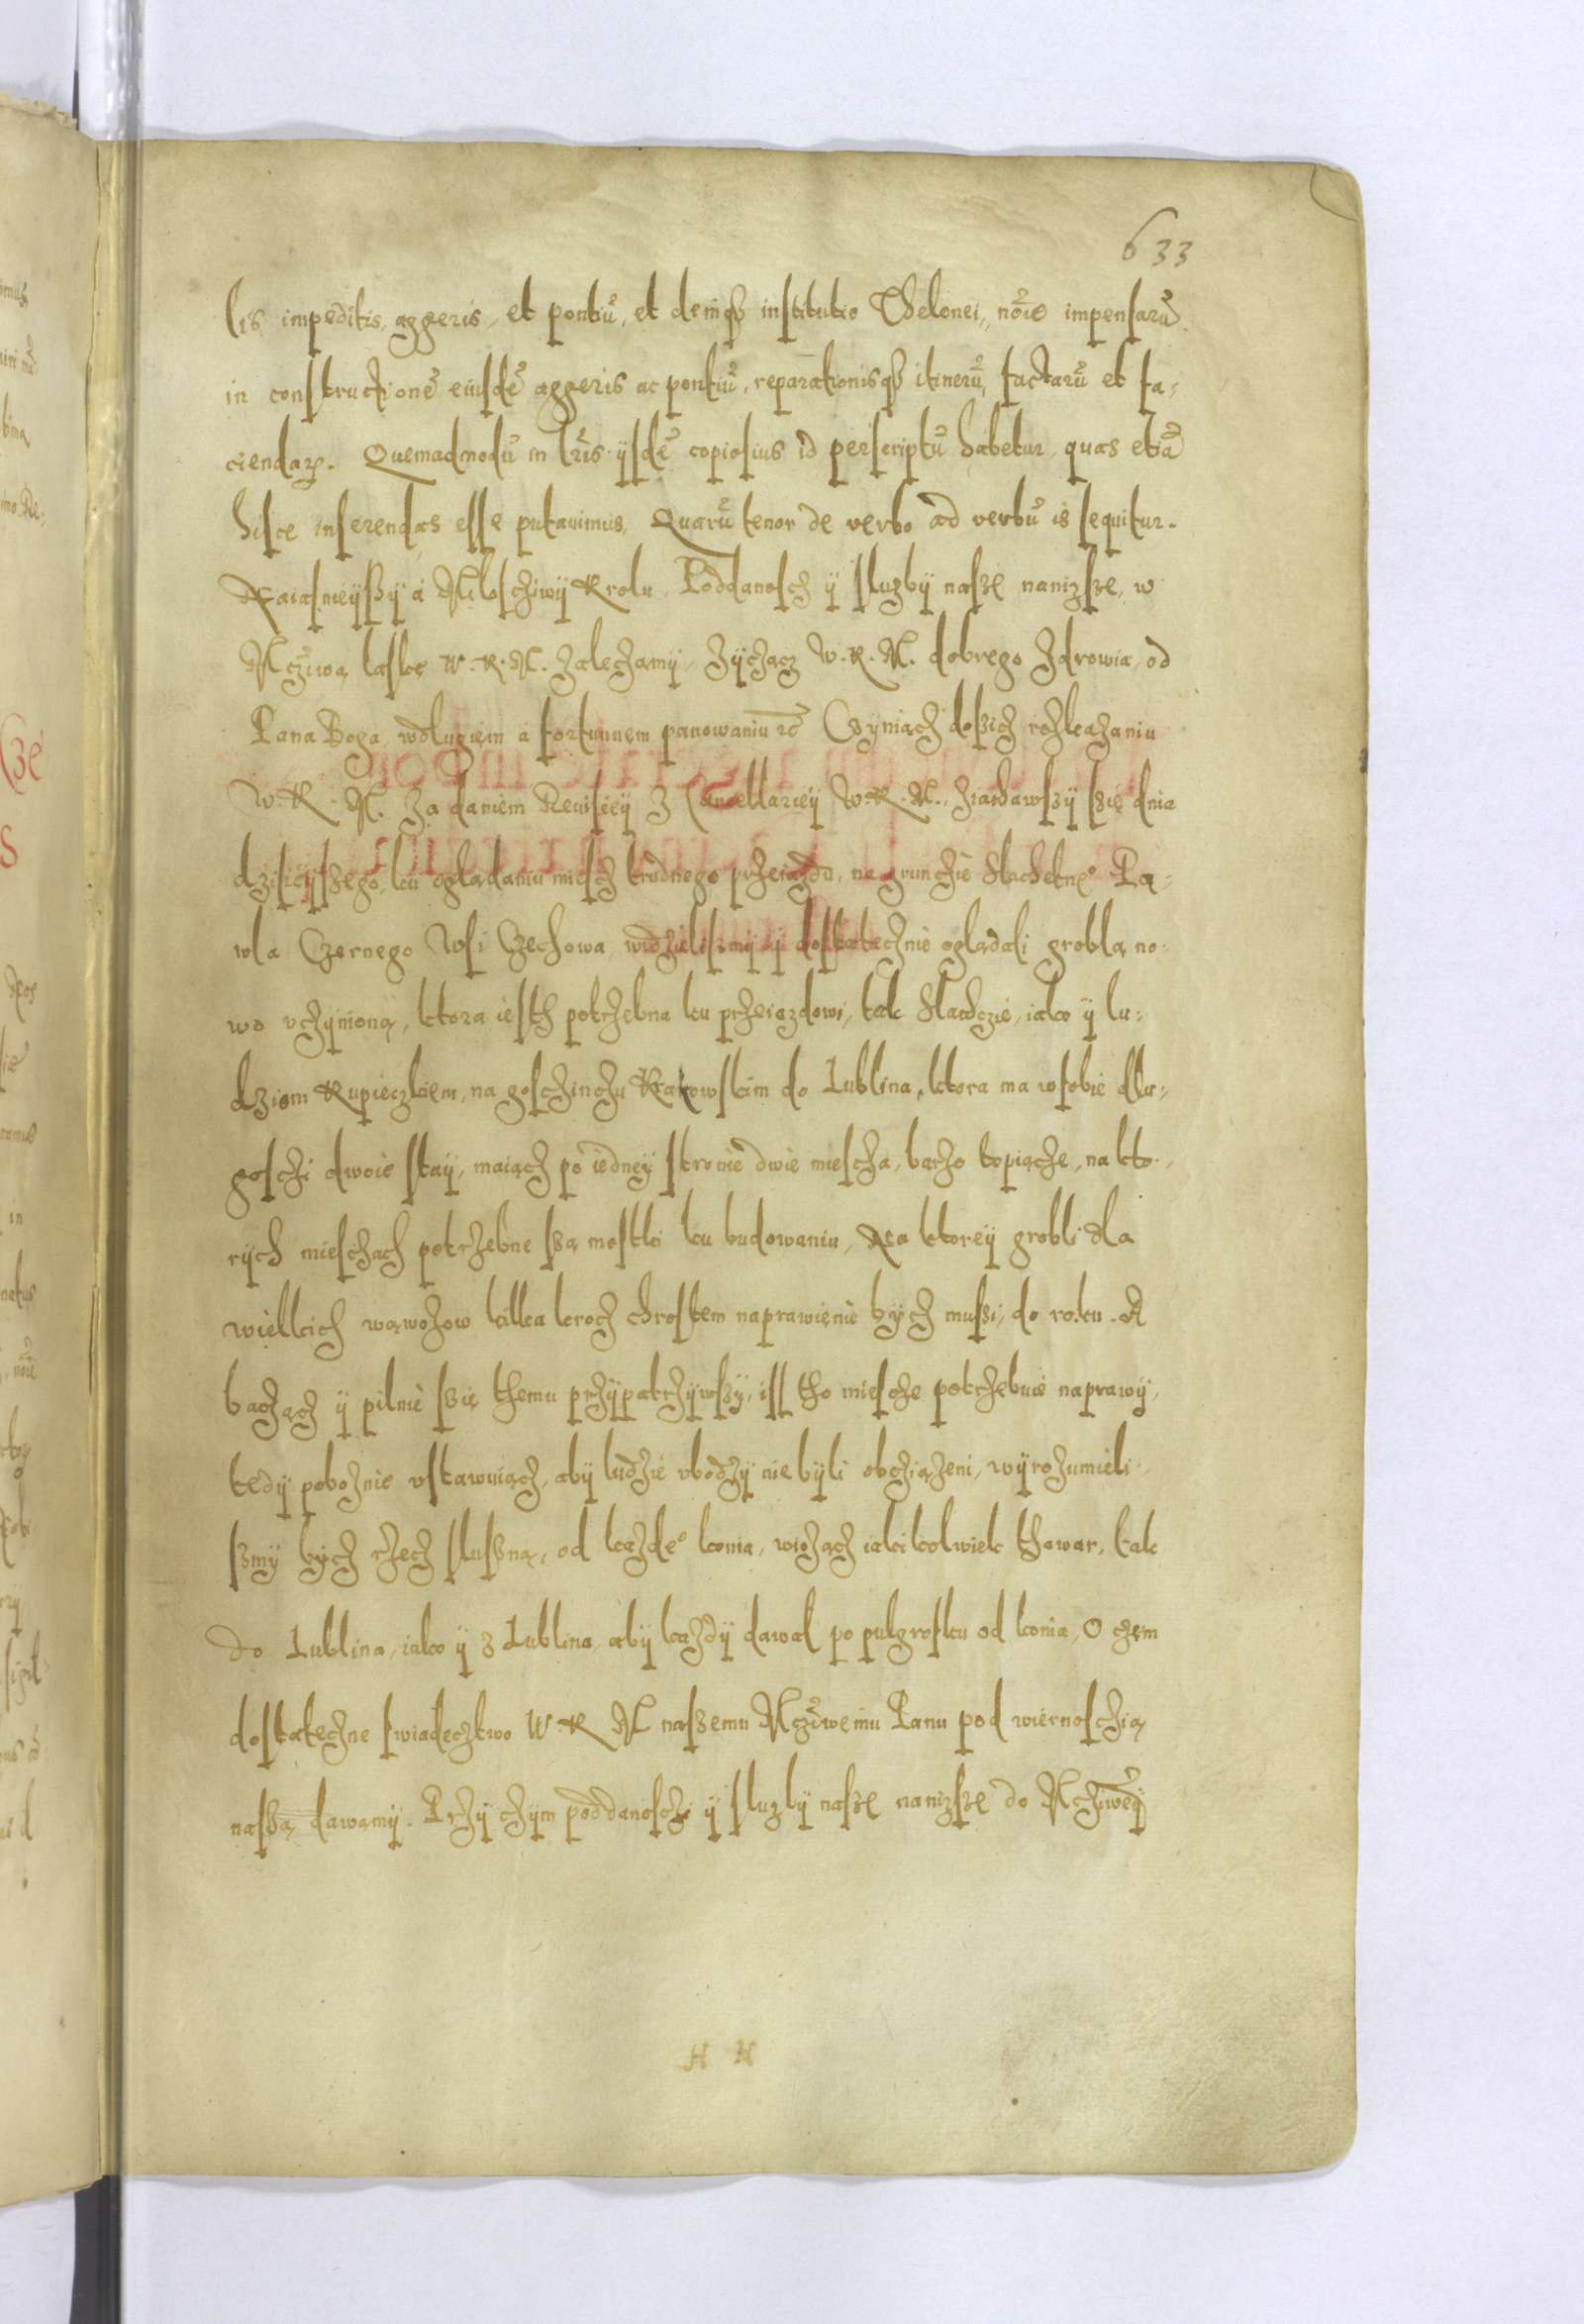 633
lis impeditis, aggeris, et pontiũ, et deniqꝫ institutio Thelonei, nõie impensarũ
in constructionẽ eiusdẽ aggeris ac pontiũ, reparationisqꝫ itinerũ, factarũ et fa⸗
ciendaꝝ. Quemadmodũ in lr̃is ijsdẽ copiosius id perscriptũ habetur, quas etiã
hisce inserendas esse putauimus, Quarũ tenor de verbo ad verbũ is sequitur.
Naiasnieÿszÿ á Miloscziwÿ Krolu, Poddanoscz ÿ sluzbÿ naszę nanizsze, w
Mcziwą laskę W. K. M. zaleczamÿ, Zÿcząc W. K. M. dobrego zdrowia, od
Pana Boga, w długiem á fortunnem panowaniu etc̃ Czÿniącz dosszicz rozkazaniu
W. K. M. Za daniem Reuisieÿ z Cancellarieÿ W. K. M., ziachawszÿ szię dnia
dzisieÿszego, ku oglądaniu miescz trudnego przeiazdu, na grunczie Slachetne° Pa⸗
wla Czernego Wsi Czechowa, widzielismÿ ÿ dostatecznie oglądali groblą no⸗
wo vczÿnioną, ktora iesth potrzebna ku przeiazdowi, tak Slachczie, iako ÿ lu⸗
dziom Kupieczkiem, na gosczinczu Krakowskim do Lublina, ktora ma w sobie dlu⸗
gosczi dwoie staÿ, maiącz po iedneÿ stronie dwie miescza, barzo topiącze, na kto⸗
rÿch miesczach potrzebne szą mostki ku budowaniu, Na ktoreÿ grobli dla
wielkich wąwozow kilka krocz chrostem naprawienie bÿcz muszi, do roku. A
baczącz ÿ pilnie szię themu przÿpatrzÿwszÿ, iss tho miescze potrzebuie naprawÿ,
tedÿ poboznie vstawuiącz, abÿ ludzie vbodzÿ nie bÿli obcziązeni, wÿrozumieli⸗
szmÿ bÿcz rzecz sluszną, od kazde° konia, wiozącz iakikolwiek thowar, tak
do Lublina, iako ÿ z Lublina, abÿ kazdÿ dawal po pulgrosku od konia, O czem
dostateczne swiadecztwo W. K. M. naszemu Mcziwemu Panu pod wiernosczią
naszą dawamÿ. Przÿ czÿm poddanosczi ÿ sluzbÿ naszę nanizsze do Mcziweÿ
H H